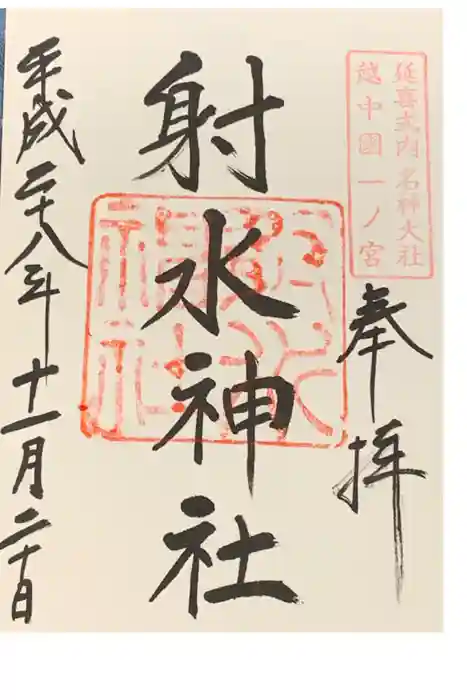 延喜式内名神大社
越中國一ノ宮
奉拝
射水神社
平成二十八年十一月二十日